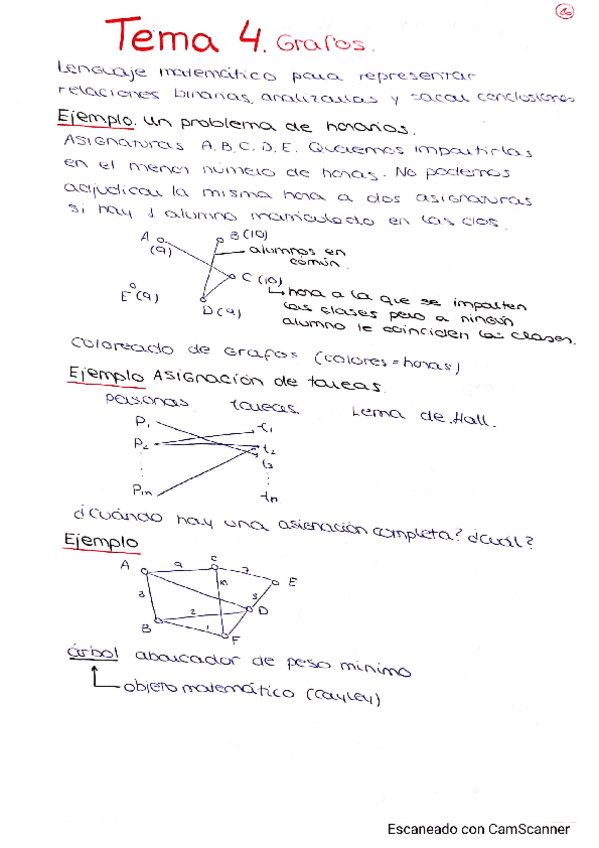 Tema 4. Grafos.
Lenguaje matemático para representar
relaciones binarias, analizarlas y sacar conclusiones
Ejemplo. Un problema de horarios.
Asignaturas A, B, C, D, E. Queremos impartirlas
en el menor número de horas. No podemos
adjudicar la misma hora a dos asignaturas
si hay 1 alumno matriculado en las dos.
A
(9)
B (10)
alumnos en
común
C (10)
E (9)
D (9)
hora a la que se imparten
las clases pero a ningún
alumno le coinciden las clases.
Coloreado de grafos (colores = horas)
Ejemplo Asignación de tareas.
personas tareas. Lema de Hall.
P1 t1
P2 t2
t3
Pm tn
¿Cuándo hay una asignación completa? ¿Cuál?
Ejemplo
A 9 C 7 E
3 10 5
B 2 D
1 F
árbol abarcador de peso mínimo
objeto matemático (Cayley)
Escaneado con CamScanner